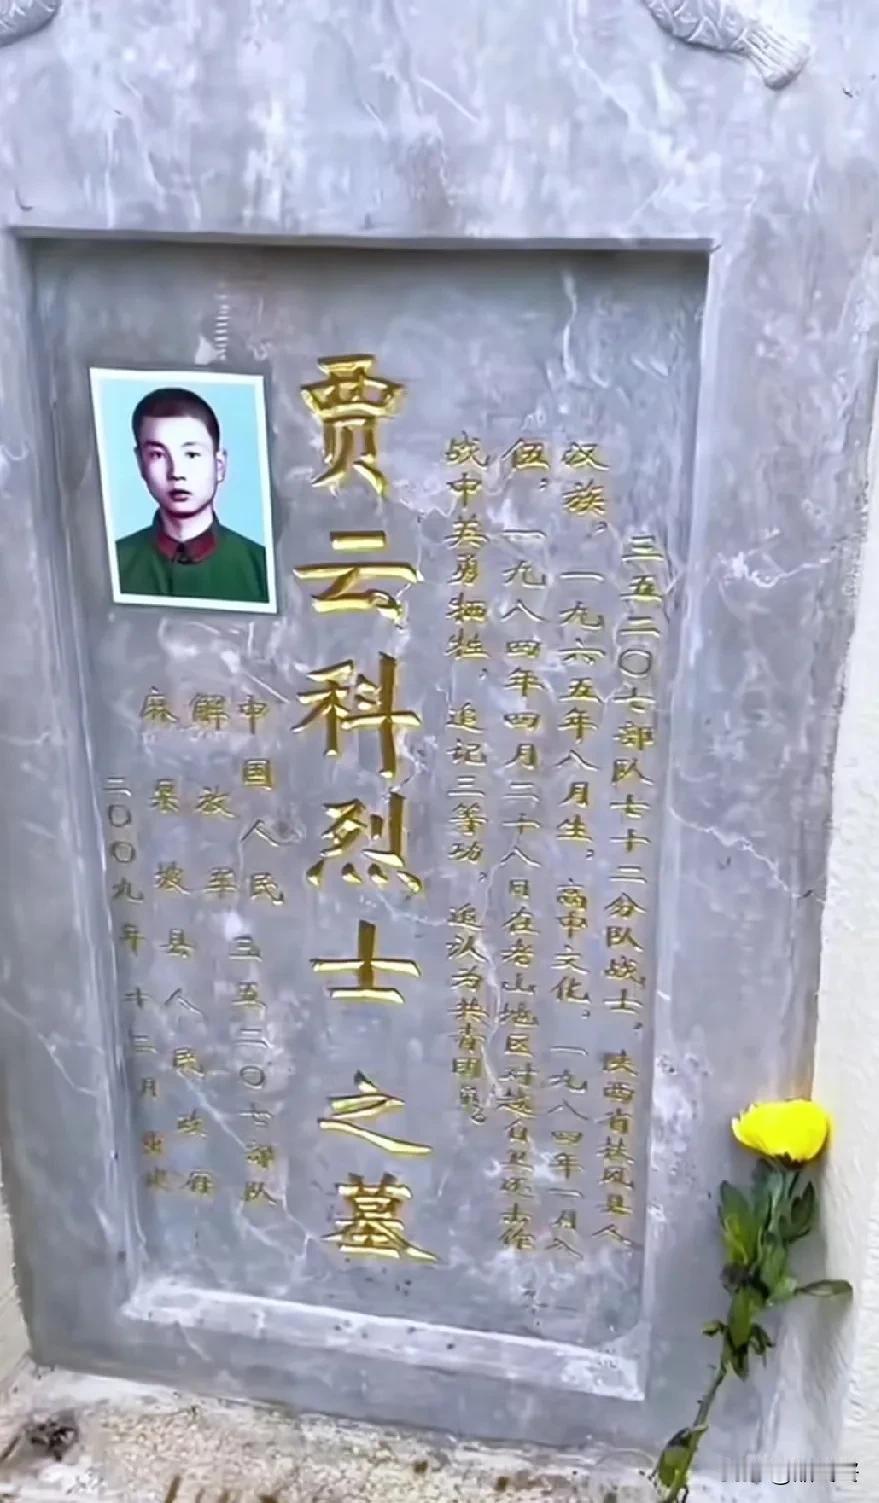 三五二〇七部队七十二分队战士，陕西省扶风县人，
汉族，一九六五年八月生，高中文化，一九八四年一月入
伍，一九八四年四月二十八日在老山地区对越自卫还击作
战中英勇牺牲，追记三等功，追认为共青团员。
贾云科烈士之墓
中国人民
解放军三五二〇七部队
麻栗坡县人民政府
二〇〇九年十二月重建